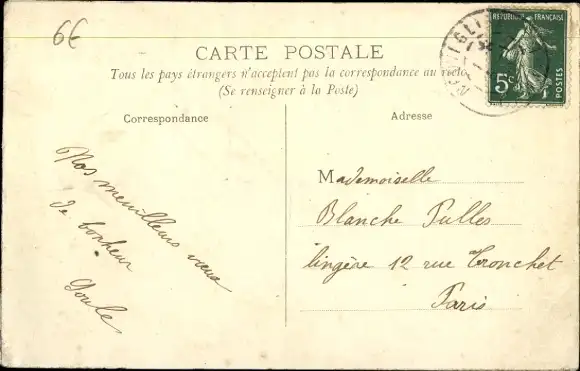 6€
CARTE POSTALE
Tous les pays étrangers n'acceptent pas la correspondance au recto
(Se renseigner à la Poste)
Correspondance
Adresse
REPUBLIQUE FRANÇAISE
5c
POSTES
Nos meuilleurs vœux
de bonheur
Mademoiselle
Blanche Pulles
lingère 12 rue Tronchet
Paris